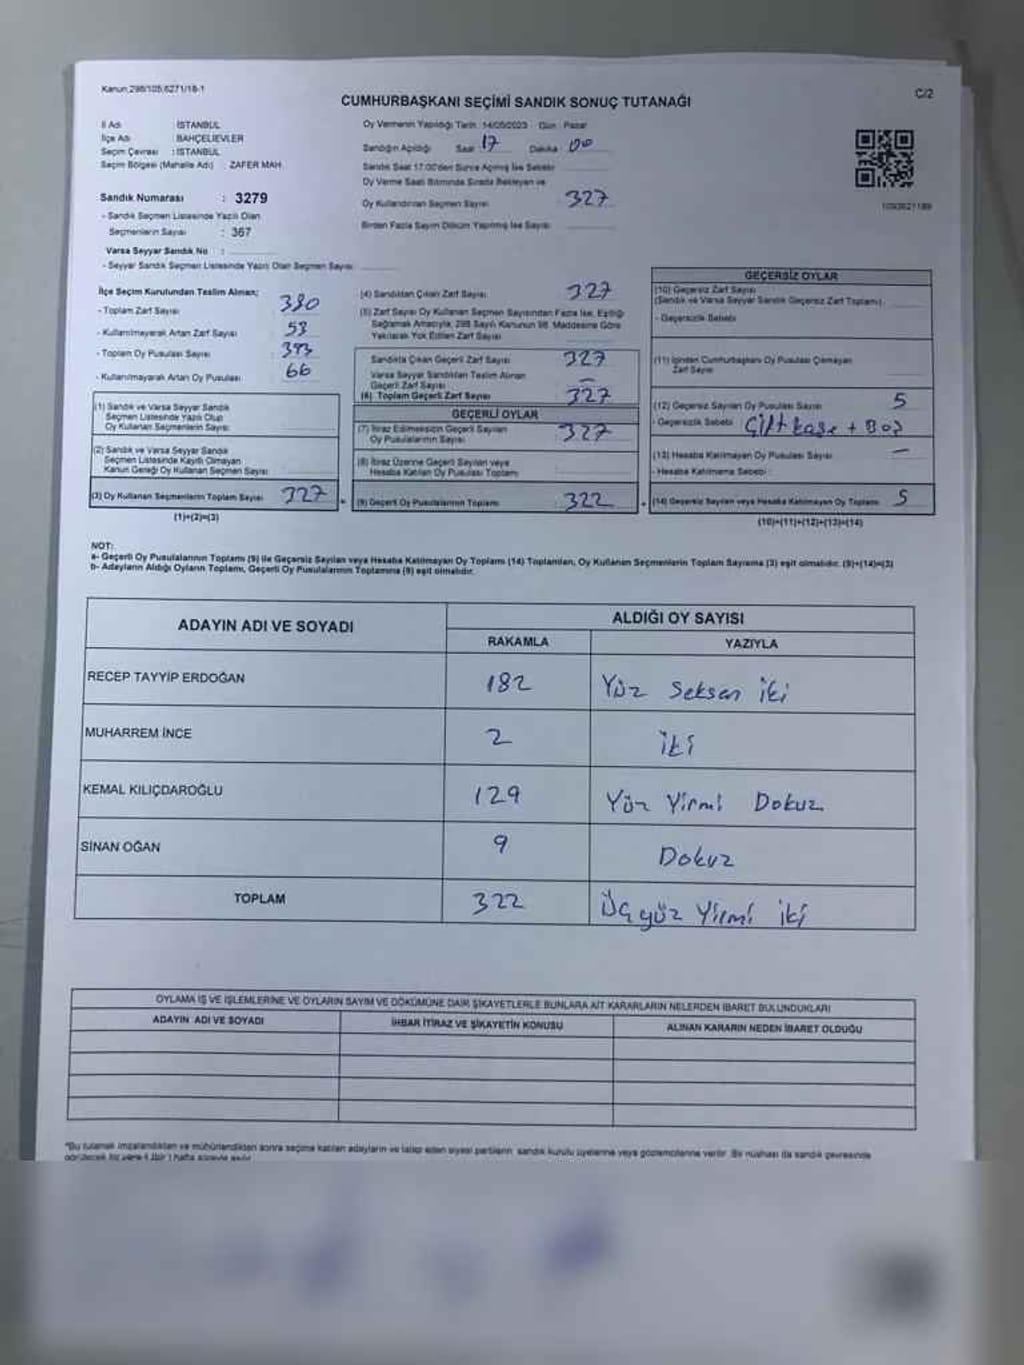 Kanun,298/105,6271/18-1
C/2
CUMHURBAŞKANI SEÇİMİ SANDIK SONUÇ TUTANAĞI
İl Adı : İSTANBUL
İlçe Adı : BAHÇELİEVLER
Seçim Çevresi : İSTANBUL
Seçim Bölgesi (Mahalle Adı) : ZAFER MAH.
Sandık Numarası : 3279
- Sandık Seçmen Listesinde Yazılı Olan
Seçmenlerin Sayısı : 367
Varsa Seyyar Sandık No :
- Seyyar Sandık Seçmen Listesinde Yazılı Olan Seçmen Sayısı
Oy Vermenin Yapıldığı Tarih : 14/05/2023 Gün : Pazar
Sandığın Açıldığı Saat 17 Dakika 00
Sandık Saat 17:00'den Sonra Açılmış İse Sebebi
Oy Verme Saati Bitiminde Sırada Bekleyen ve
Oy Kullandırılan Seçmen Sayısı 327
Birden Fazla Sayım Döküm Yapılmış İse Sayısı
İlçe Seçim Kurulundan Teslim Alınan;
- Toplam Zarf Sayısı 380
- Kullanılmayarak Artan Zarf Sayısı 53
- Toplam Oy Pusulası Sayısı 393
- Kullanılmayarak Artan Oy Pusulası 66
(1) Sandık ve Varsa Seyyar Sandık
Seçmen Listesinde Yazılı Olup
Oy Kullanan Seçmenlerin Sayısı
(2) Sandık ve Varsa Seyyar Sandık
Seçmen Listesinde Kayıtlı Olmayan
Kanun Gereği Oy Kullanan Seçmen Sayısı
(3) Oy Kullanan Seçmenlerin Toplam Sayısı 327
(1)+(2)=(3)
(4) Sandıktan Çıkan Zarf Sayısı 327
(5) Zarf Sayısı Oy Kullanan Seçmen Sayısından Fazla İse, Eşitliği
Sağlamak Amacıyla, 298 Sayılı Kanunun 98. Maddesine Göre
Yakılarak Yok Edilen Zarf Sayısı
Sandıkta Çıkan Geçerli Zarf Sayısı 327
Varsa Seyyar Sandıktan Teslim Alınan
Geçerli Zarf Sayısı –
(6) Toplam Geçerli Zarf Sayısı 327
GEÇERLİ OYLAR
(7) İtiraz Edilmeksizin Geçerli Sayılan
Oy Pusulalarının Sayısı 327
(8) İtiraz Üzerine Geçerli Sayılan veya
Hesaba Katılan Oy Pusulası Toplamı
(9) Geçerli Oy Pusulalarının Toplamı 322
GEÇERSİZ OYLAR
(10) Geçersiz Zarf Sayısı
(Sandık ve Varsa Seyyar Sandık Geçersiz Zarf Toplamı)
- Geçersizlik Sebebi
(11) İçinden Cumhurbaşkanı Oy Pusulası Çıkmayan
Zarf Sayısı
(12) Geçersiz Sayılan Oy Pusulası Sayısı 5
- Geçersizlik Sebebi Çift kaşe + Boş
(13) Hesaba Katılmayan Oy Pusulası Sayısı –
- Hesaba Katılmama Sebebi :
(14) Geçersiz Sayılan veya Hesaba Katılmayan Oy Toplamı 5
(10)+(11)+(12)+(13)=(14)
NOT:
a- Geçerli Oy Pusulalarının Toplamı (9) ile Geçersiz Sayılan veya Hesaba Katılmayan Oy Toplamı (14) Toplamları, Oy Kullanan Seçmenlerin Toplam Sayısına (3) eşit olmalıdır. (9)+(14)=(3)
b- Adayların Aldığı Oyların Toplamı, Geçerli Oy Pusulalarının Toplamına (9) eşit olmalıdır.
ADAYIN ADI VE SOYADI
ALDIĞI OY SAYISI
RAKAMLA YAZIYLA
RECEP TAYYİP ERDOĞAN 182 Yüz Seksen iki
MUHARREM İNCE 2 iki
KEMAL KILIÇDAROĞLU 129 Yüz Yirmi Dokuz
SİNAN OĞAN 9 Dokuz
TOPLAM 322 Üçyüz Yirmi iki
OYLAMA İŞ VE İŞLEMLERİNE VE OYLARIN SAYIM VE DÖKÜMÜNE DAİR ŞİKAYETLERLE BUNLARA AİT KARARLARIN NELERDEN İBARET BULUNDUKLARI
ADAYIN ADI VE SOYADI İHBAR İTİRAZ VE ŞİKAYETİN KONUSU ALINAN KARARIN NEDEN İBARET OLDUĞU
*Bu tutanak imzalandıktan ve mühürlendikten sonra seçime katılan adayların ve talep eden siyasi partilerin sandık kurulu üyelerine veya gözlemcilerine verilir. Bir nüshası da sandık çevresinde